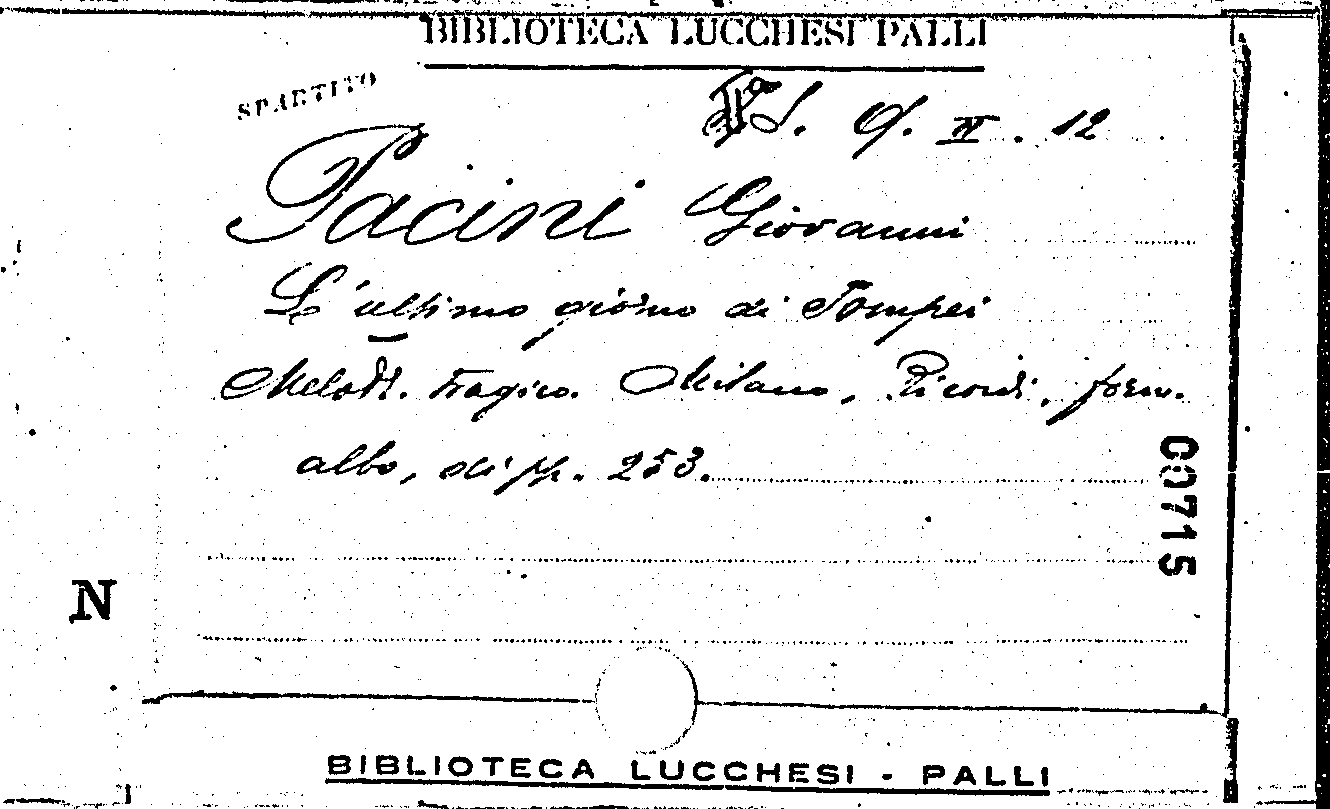 BIBLIOTECA LUCCHESI PALLI
SPARTITO
S. C. IV. 12
Pacini Giovanni
L'ultimo giorno di Pompei
Melodr. tragico. Milano, Ricordi, form.
albo, di pp. 253.
00715
N
BIBLIOTECA LUCCHESI - PALLI